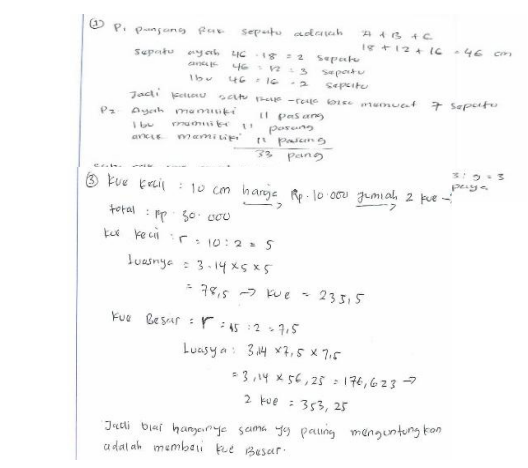 ① P1 panjang Rak sepatu adalah A + B + C
18 + 12 + 16 = 46 cm
sepatu ayah 46 : 18 = 2 sepatu
anak 46 : 12 = 3 sepatu
Ibu 46 : 16 = 2 sepatu
Jadi kalau satu Rak-rata bisa memuat 7 sepatu
P2 Ayah memiliki 11 pasang
Ibu memiliki 11 pasang
anak memiliki 11 pasang
33 pang
3 : 9 = 3
paya
③ Kue kecil : 10 cm harga Rp. 10.000 jumlah 2 kue
total : Rp 30.000
kue kecil : r = 10 : 2 = 5
Luasnya = 3.14 x 5 x 5
= 78,5 → kue = 235,5
Kue Besar : r = 15 : 2 = 7,5
Luasya : 3,14 x 7,5 x 7,5
= 3,14 x 56,25 = 176,623 →
2 kue = 353,25
Jadi biar harganya sama yg paling menguntungkan
adalah membeli kue Besar.